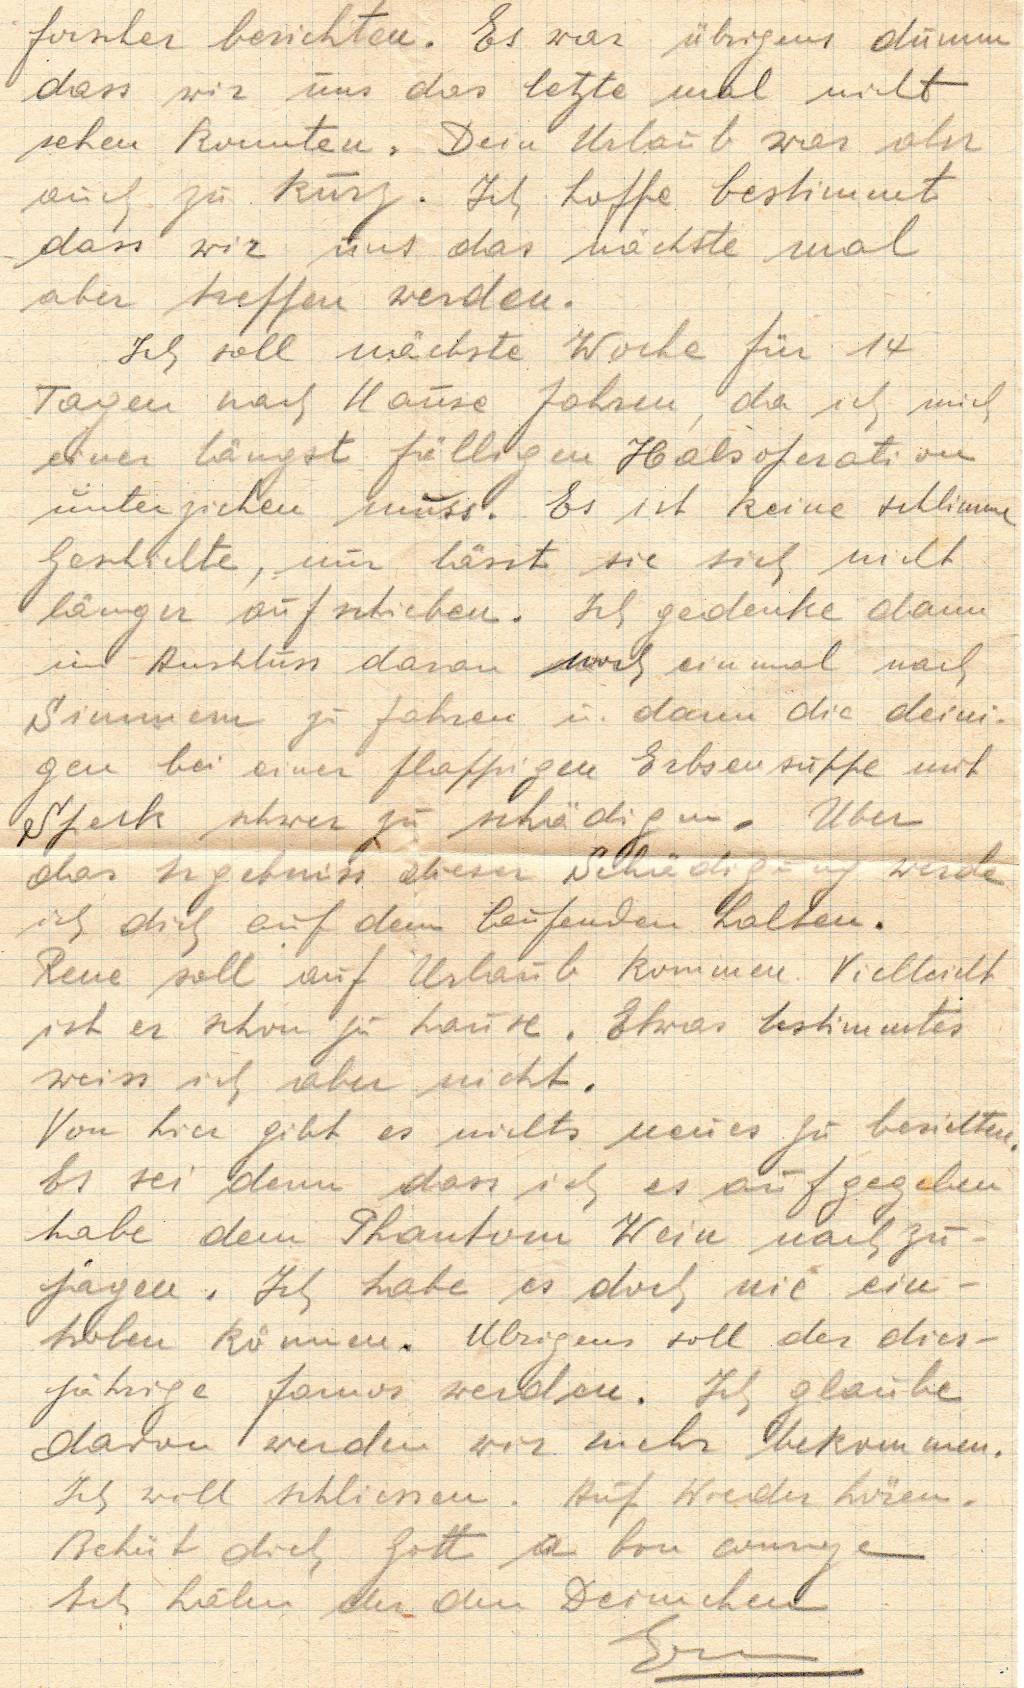 forscher berichten. Es war übrigens dumm
dass wir uns das letzte mal nicht
sehen konnten. Dein Urlaub war aber
auch zu kurz. Ich hoffe bestimmt
dass wir uns das nächste mal
aber treffen werden.
Ich soll nächste Woche für 14
Tagen nach Hause fahren, da ich mich
einer längst fälligen Halsoperation
unterziehen muss. Es ist keine schlimme
Geschichte, nur lässt sie sich nicht
länger aufschieben. Ich gedenke dann
im Anschluss daran noch einmal nach
zu fahren u. dann die deini-
gen bei einer flappigen Erbsensuppe mit
Speck schwer zu schädigen. Über
das Ergebniss dieser Schädigung werde
ich dich auf dem laufenden halten.
Rene soll auf Urlaub kommen. Vielleicht
ist er schon zu hause. Etwas bestimmtes
weiss ich aber nicht.
Von hier gibt es nichts neues zu berichten.
Es sei denn dass ich es aufgegeben
habe dem Phantom Wein nachzu-
jagen. Ich habe es doch nie ein-
holen können. Übrigens soll der dies-
jährige famos werden. Ich glaube
davon werden wir mehr bekommen.
Ich will schliessen. Auf Wieder hören.
Behüt dich Gott a bon courage
Ich der den